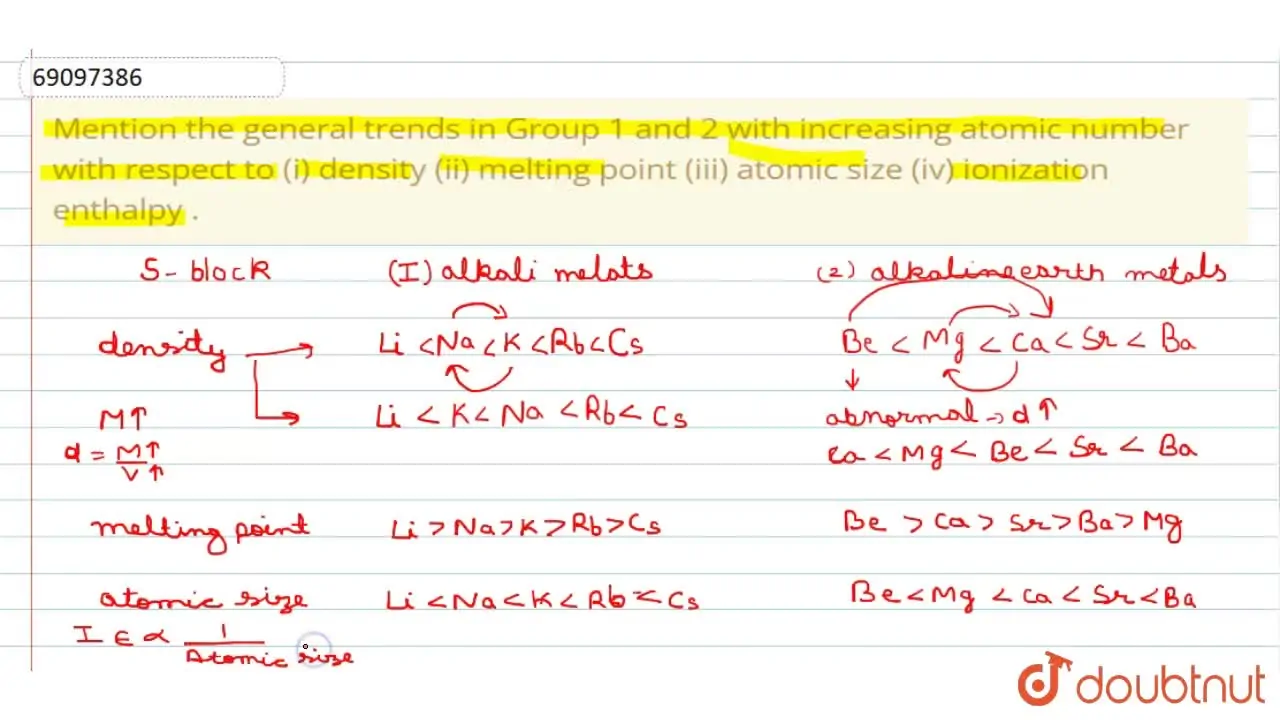 69097386
Mention the general trends in Group 1 and 2 with increasing atomic number
with respect to (i) density (ii) melting point (iii) atomic size (iv) ionization
enthalpy .
S- block (I) alkali melats (2) alkalineearth metals
density Li <Na< K <Rb<Cs Be < Mg < Ca < Sr < Ba
M↑ Li < K< Na <Rb< Cs abnormal → d ↑
d = M↑ / V↑ Ca < Mg < Be < Sr < Ba
melting point Li > Na > K > Rb > Cs Be > Ca > Sr > Ba > Mg
atomic size Li < Na < K < Rb < Cs Be < Mg < Ca < Sr < Ba
I E ∝ 1 / Atomic size
doubtnut